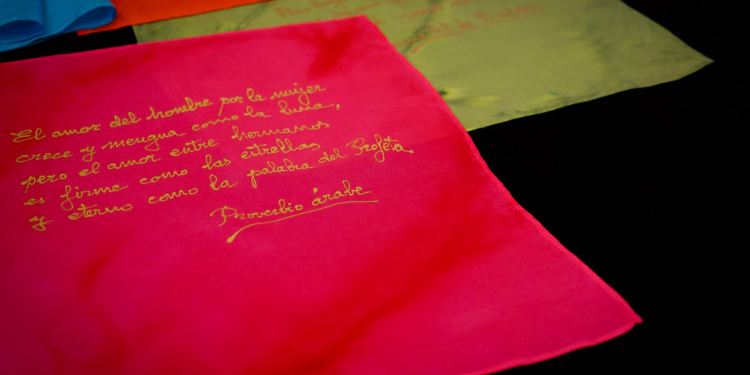 El amor del hombre por la mujer
crece y mengua como la luna,
pero el amor entre hermanos
es firme como las estrellas
y eterno como la palabra del Profeta.
Proverbio árabe